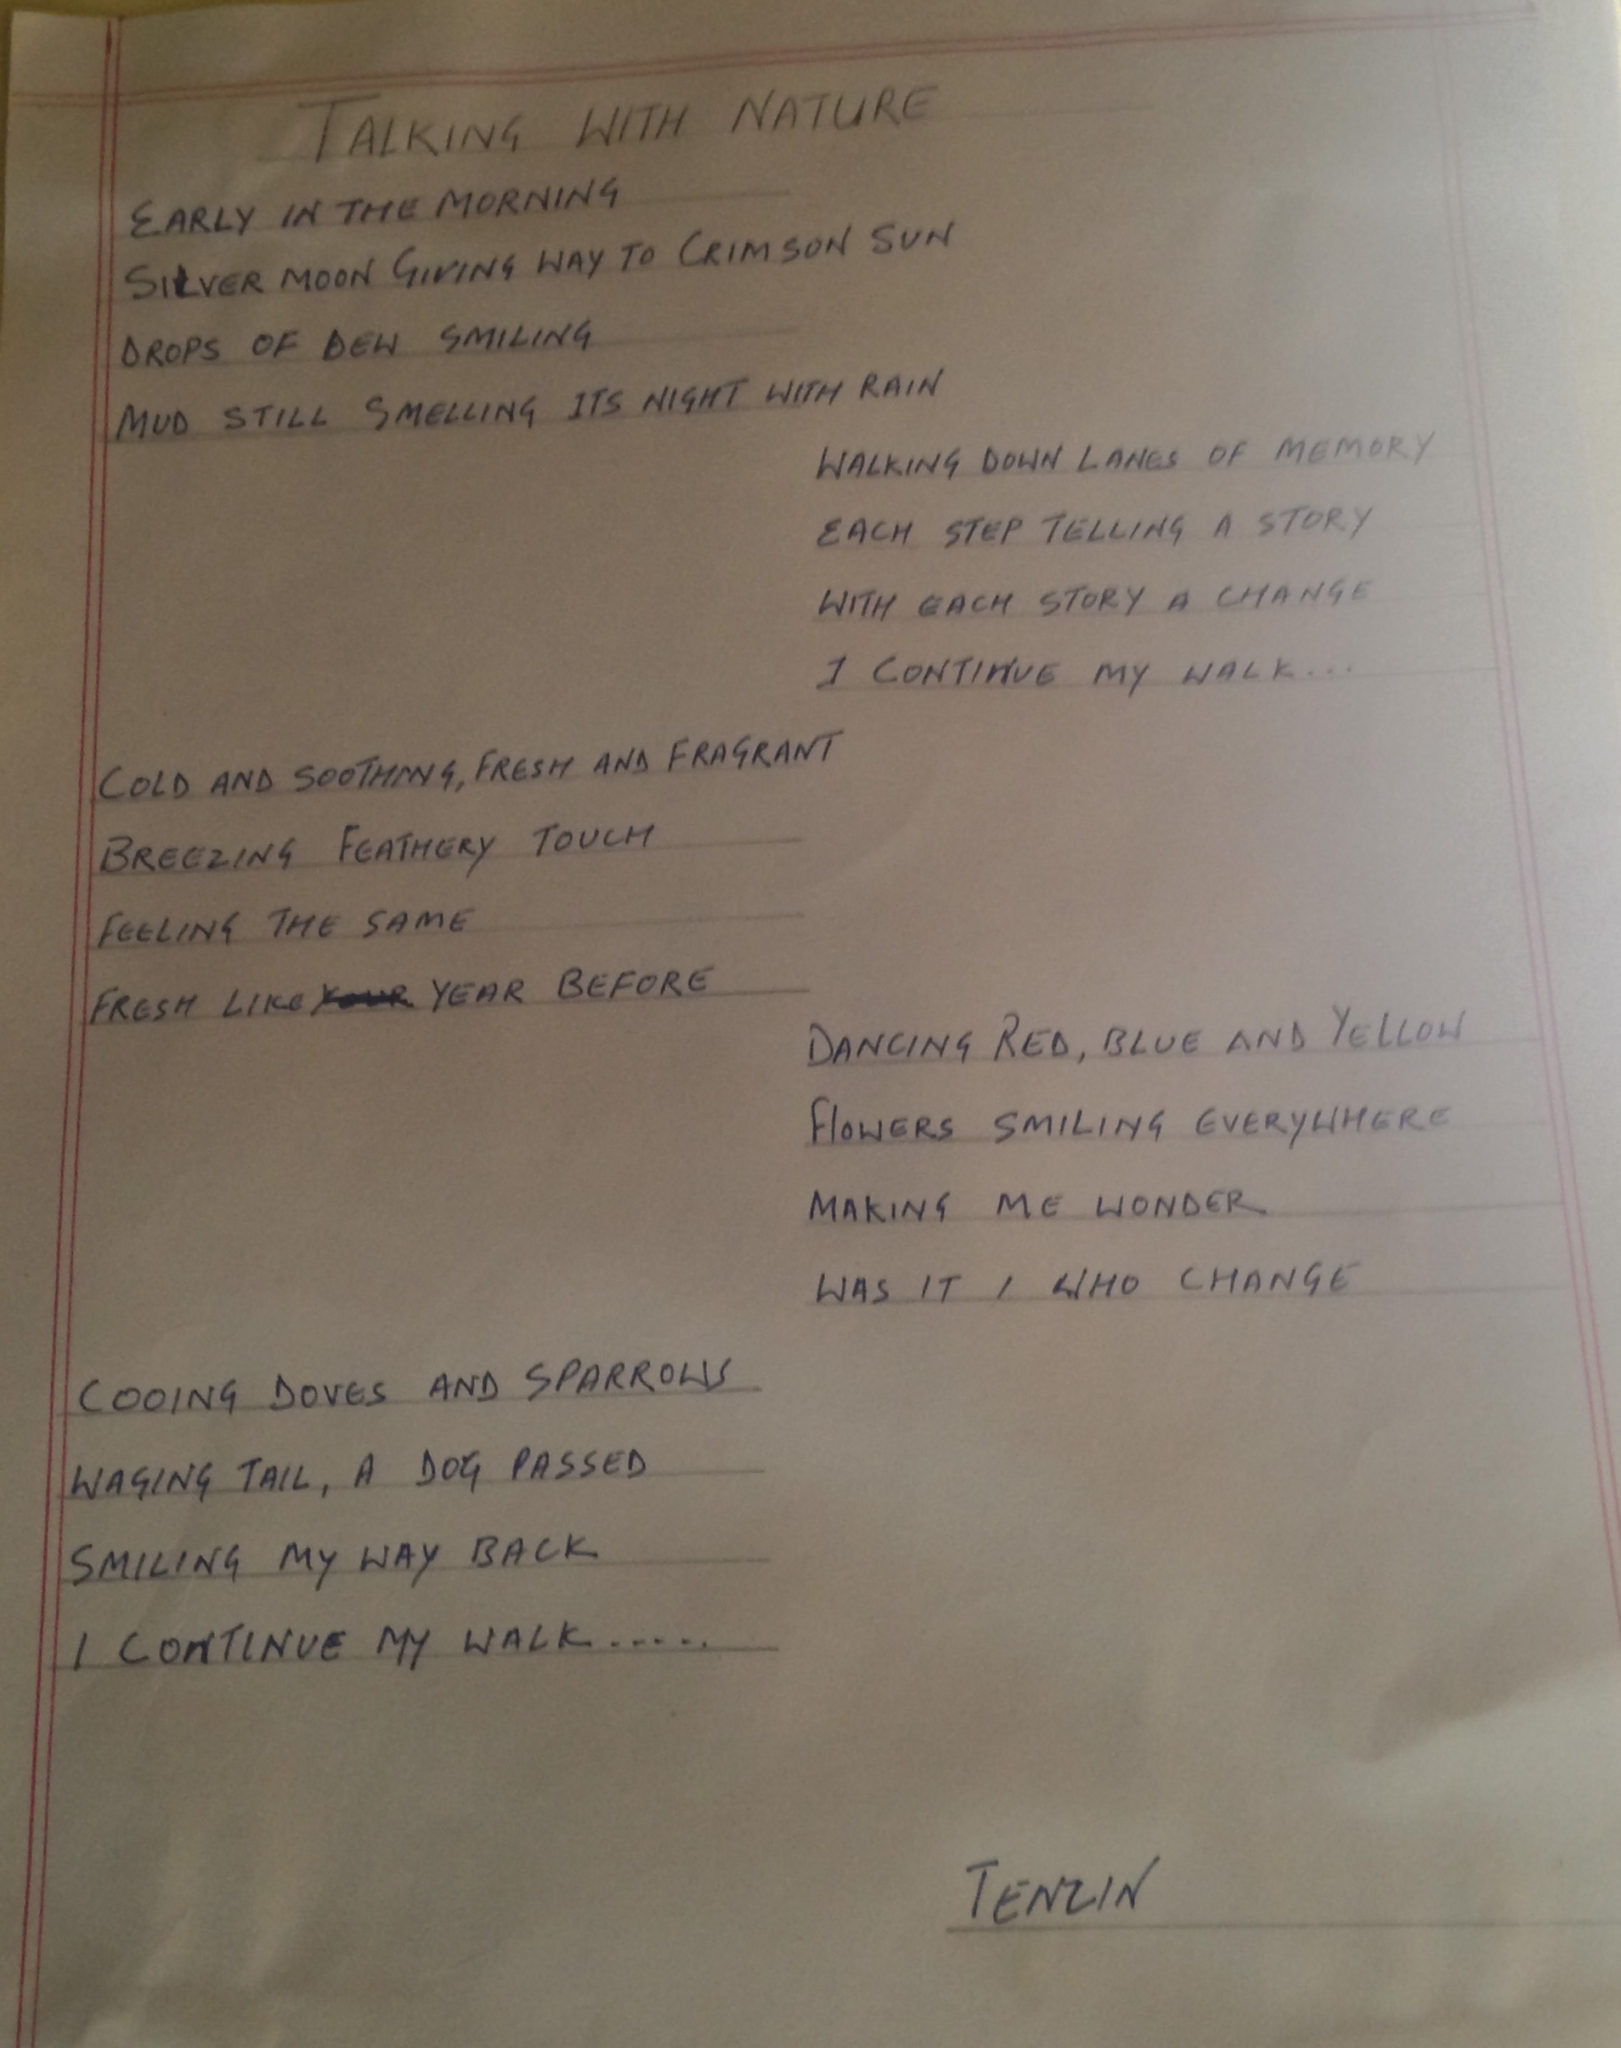 TALKING WITH NATURE
EARLY IN THE MORNING
SILVER MOON GIVING WAY TO CRIMSON SUN
DROPS OF DEW SMILING
MUD STILL SMELLING ITS NIGHT WITH RAIN
WALKING DOWN LANES OF MEMORY
EACH STEP TELLING A STORY
WITH EACH STORY A CHANGE
I CONTINUE MY WALK...
COLD AND SOOTHING, FRESH AND FRAGRANT
BREEZING FEATHERY TOUCH
FEELING THE SAME
FRESH LIKE YEAR BEFORE
DANCING RED, BLUE AND YELLOW
FLOWERS SMILING EVERYWHERE
MAKING ME WONDER
WAS IT I WHO CHANGE
COOING DOVES AND SPARROWS
WAGING TAIL, A DOG PASSED
SMILING MY WAY BACK
I CONTINUE MY WALK......
TENZIN